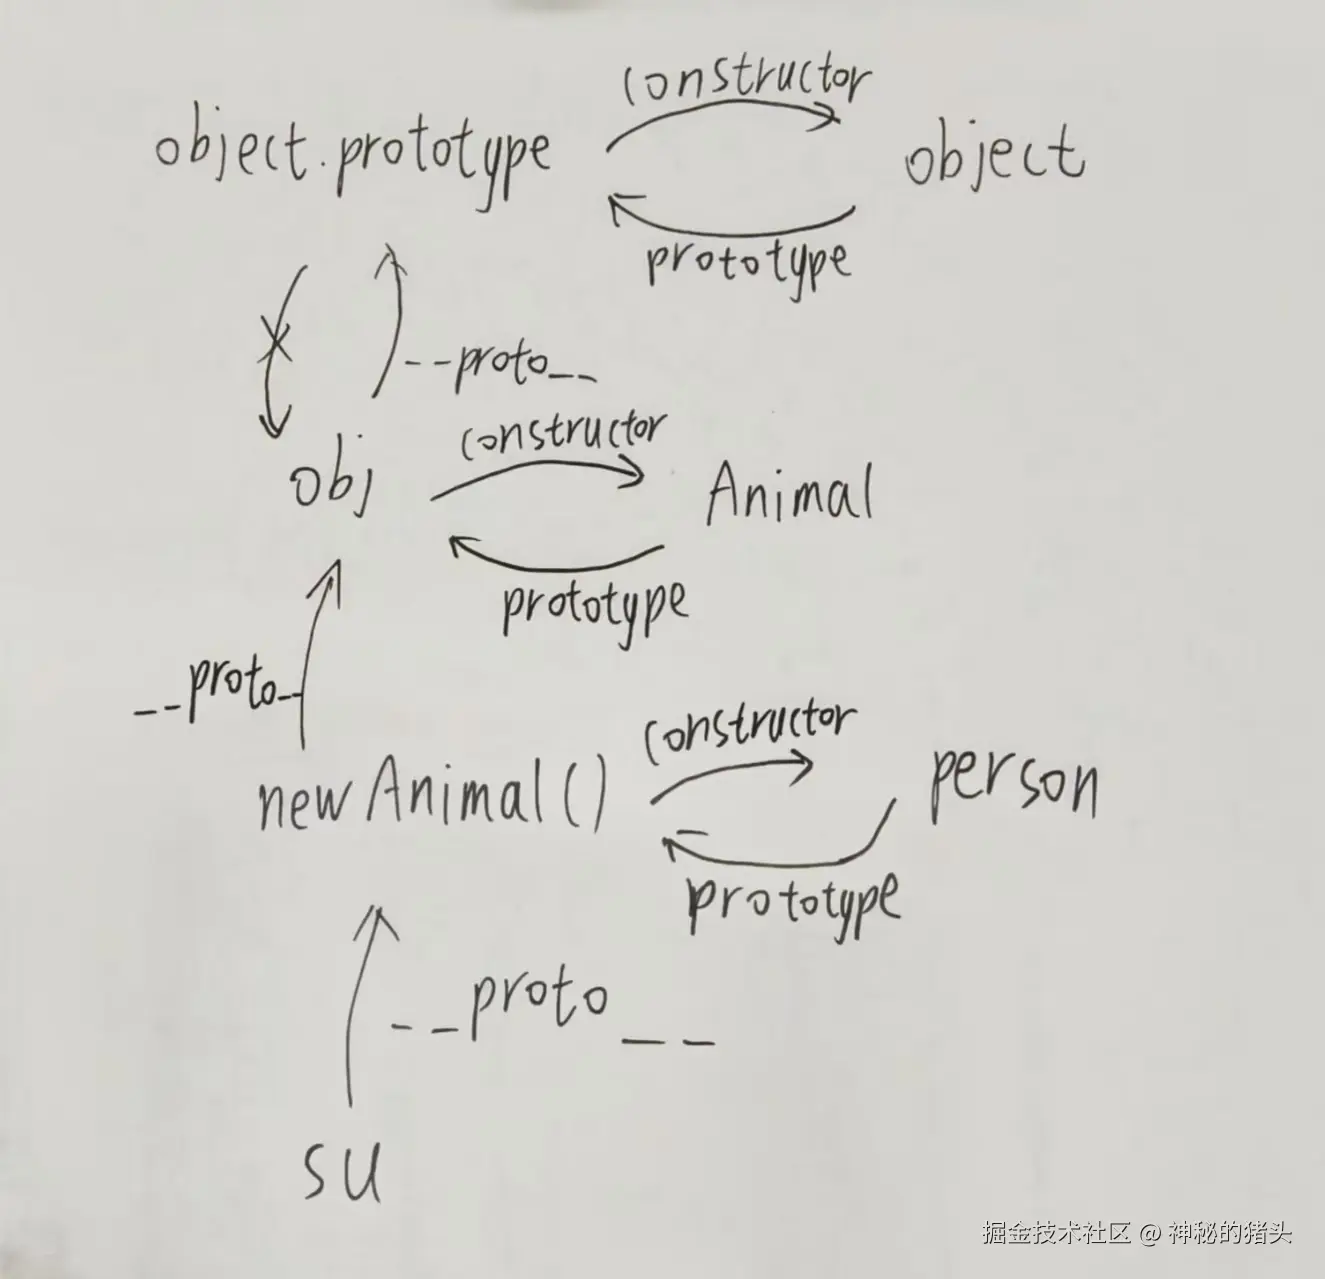 constructor
object.prototype
object
prototype
__proto__
constructor
obj
Animal
prototype
__proto_
constructor
new Animal()
person
prototype
__proto__
su
掘金技术社区 @ 神秘的猪头